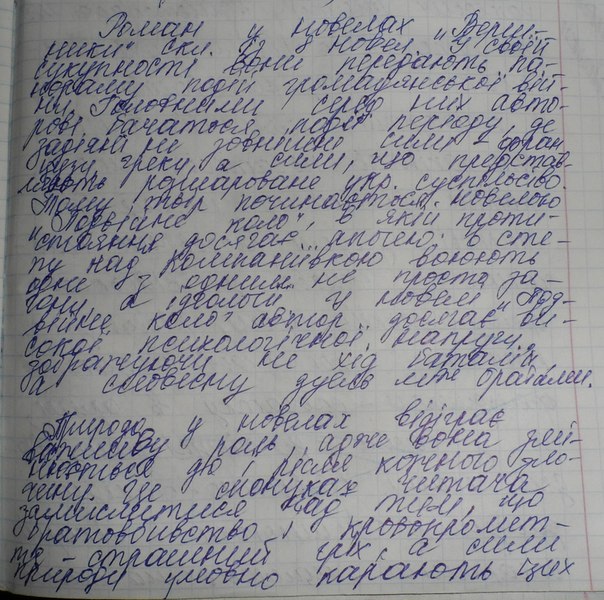 Роман у новелах „Верш-
ники" скл. із 8 новел. У своїй
сукупності вони передають па-
нораму подій громадянської вій-
ни. Головними серед них авто-
рові бачаться події періоду, де
задіяні не зовнішні сили – фран-
цузи, греки, а сили, що представ-
ляють розшароване укр. суспільство.
Тому твір починається новелою
„Подвійне коло", в якій проти-
стояння досягає апогею: в сте-
пу над Компаніївкою воюють
одні з одними не просто за-
гони, а ідеології. У новелі „Под-
війне коло" автор досягає ви-
сокої психологічної напруги,
зображуючи не хід баталій,
а словесну дуель між братами.
Природа у новелах відіграє
важливу роль, адже вона змі-
нюється до і після кожного зло-
чину. Це спонукає читача
замислитися над тим, що
братовбивство і кровопролит-
тя – страшний гріх, а сили
природи умовно карають цих